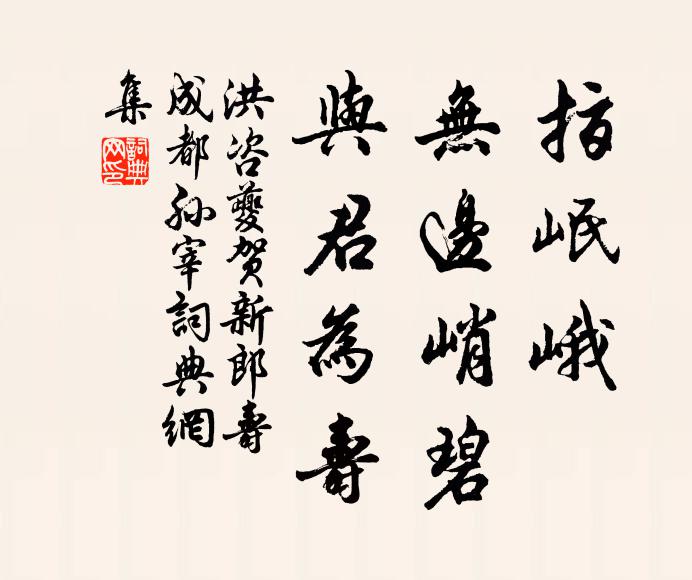 指岷峨
無邊峭碧
與君為壽
洪咨夔賀新郎壽
成都孙宰詞典網
集
詞典
网印